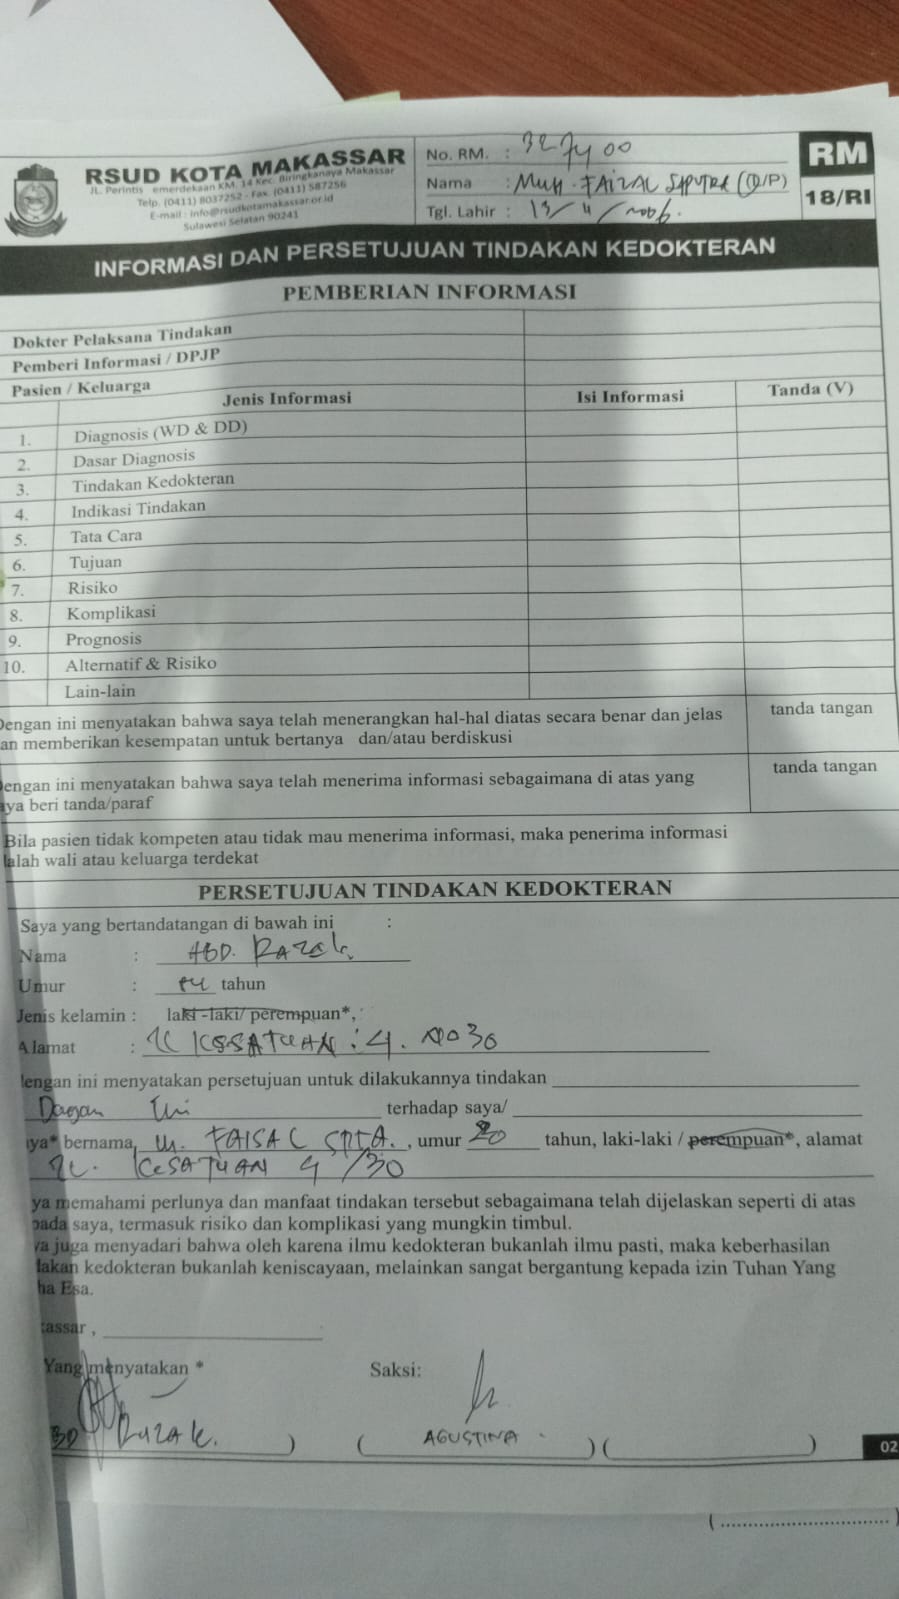 RSUD KOTA MAKASSAR
JL. Perintis emerdekaan KM. 14 Kec. Biringkanaya Makassar
Telp. (0411) 8037252 - Fax. (0411) 587256
E-mail : info@rsudkotamakassar.or.id
Sulawesi Selatan 90241
No. RM. :
Nama : MUH. FAIZAL SAPUTRA (L/P)
Tgl. Lahir : 13/4/2006.
RM
18/RI
INFORMASI DAN PERSETUJUAN TINDAKAN KEDOKTERAN
PEMBERIAN INFORMASI
Dokter Pelaksana Tindakan
Pemberi Informasi / DPJP
Pasien / Keluarga
Jenis Informasi Isi Informasi Tanda (V)
1. Diagnosis (WD & DD)
2. Dasar Diagnosis
3. Tindakan Kedokteran
4. Indikasi Tindakan
5. Tata Cara
6. Tujuan
7. Risiko
8. Komplikasi
9. Prognosis
10. Alternatif & Risiko
Lain-lain
Dengan ini menyatakan bahwa saya telah menerangkan hal-hal diatas secara benar dan jelas tanda tangan
an memberikan kesempatan untuk bertanya dan/atau berdiskusi
Dengan ini menyatakan bahwa saya telah menerima informasi sebagaimana di atas yang tanda tangan
aya beri tanda/paraf
Bila pasien tidak kompeten atau tidak mau menerima informasi, maka penerima informasi
dalah wali atau keluarga terdekat
PERSETUJUAN TINDAKAN KEDOKTERAN
Saya yang bertandatangan di bawah ini :
Nama : ABD. Razak
Umur : tahun
Jenis kelamin : laki -laki/ perempuan*,
Alamat : KESATUAN : 4. NO 30
dengan ini menyatakan persetujuan untuk dilakukannya tindakan
terhadap saya/
aya* bernama, M. FAISAL SPTA. , umur 20 tahun, laki-laki / perempuan*, alamat
KESATUAN 4 /30
ya memahami perlunya dan manfaat tindakan tersebut sebagaimana telah dijelaskan seperti di atas
pada saya, termasuk risiko dan komplikasi yang mungkin timbul.
ya juga menyadari bahwa oleh karena ilmu kedokteran bukanlah ilmu pasti, maka keberhasilan
dakan kedokteran bukanlah keniscayaan, melainkan sangat bergantung kepada izin Tuhan Yang
ha Esa.
kassar ,
Yang menyatakan * Saksi:
BD Razak. ) ( AGUSTINA ) ( )
02
( .............................. )